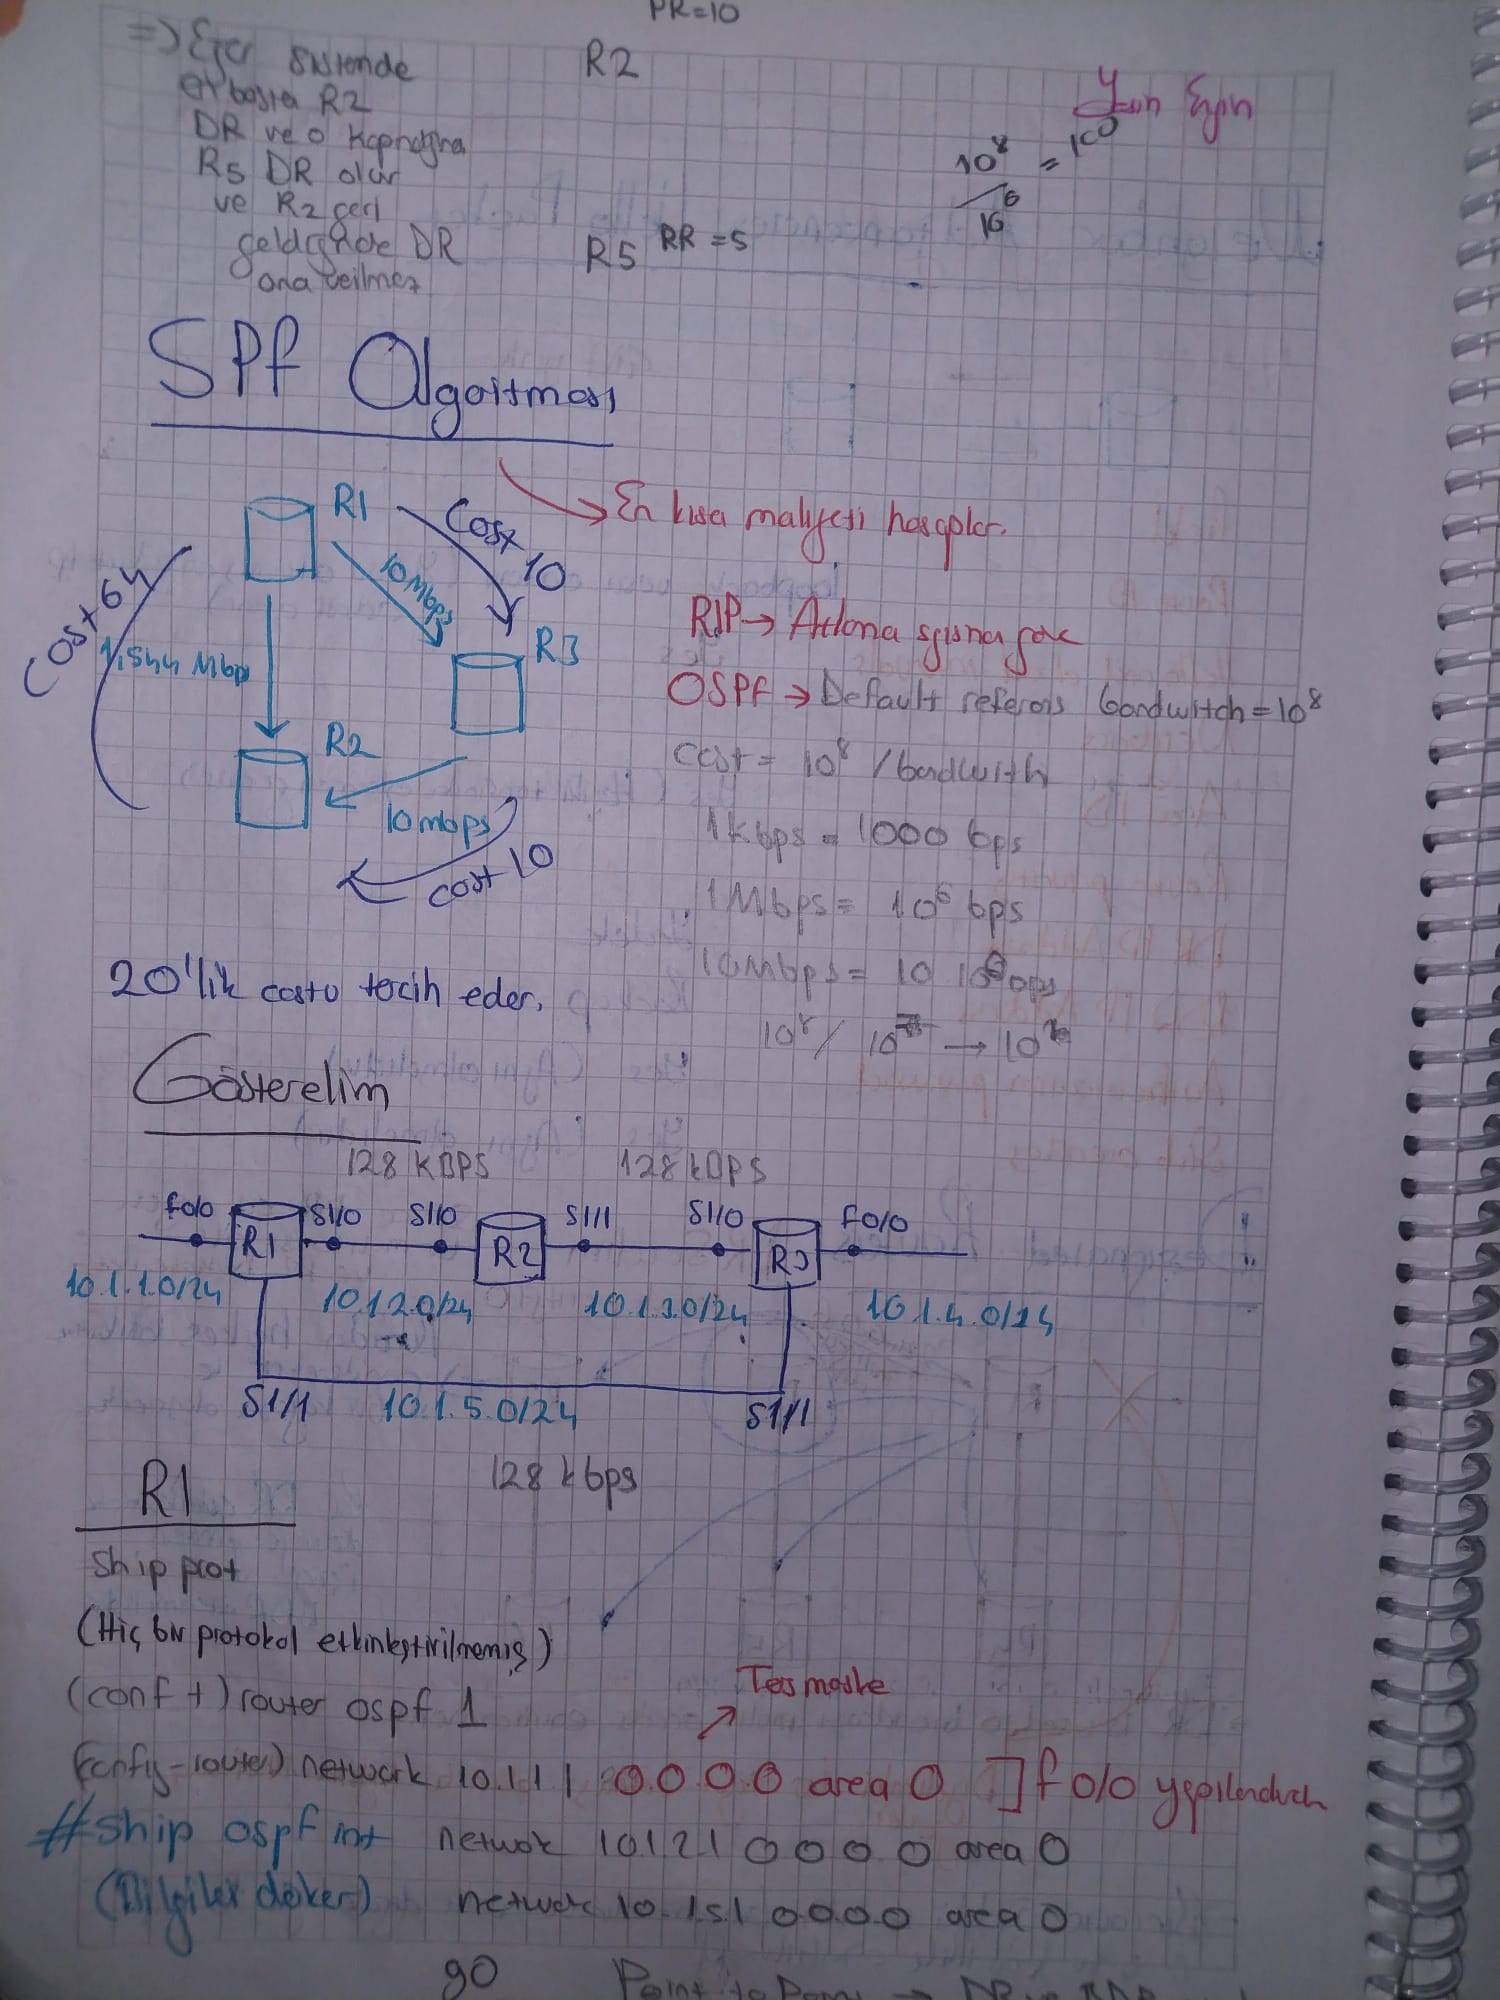 PR=10
=> Eğer sistemde
R2
en başta R2
DR ve o kapnağına
R5 DR olur
ve R2 geri
geldiğinde DR
ona veilmez
R5 RR = 5
10⁸ = 100
/ 6
10
SPf Algoitması
→ En kısa maliyeti hesaplar.
R1
Cost 10
10Mbps
R3
Cost 64
1.544 Mbp
R2
10mbps
cost 10
RIP → Atlama sayısına göre
OSPF → Default referans bandwitch = 10⁸
cost = 10⁸ / bandwith
1 kbps = 1000 bps
1 Mbps = 10⁶ bps
10Mbps = 10 10⁶ bps
10⁸ /
20'lik costu tercih eder.
Gösterelim
128 KBPS
128 KBPS
f0/0
R1
S1/0
S1/0
R2
S1/1
S1/0
R3
f0/0
10.1.1.0/24
10.1.2.0/24
10.1.3.0/24
10.1.4.0/24
S1/1
10.1.5.0/24
S1/1
128 kbps
R1
sh ip prot
(Hiç bir protokol etkinleştirilmemiş)
(conf t) router ospf 1
Ters maske
(config-router) network 10.1.1.1 0.0.0.0 area 0 ] f 0/0
#sh ip ospf int network 10.1.2.1 0 0 0 0 area 0
(Bilgiler döker) network 10.1.5.1 0.0.0.0 area 0
90
Point to → DR